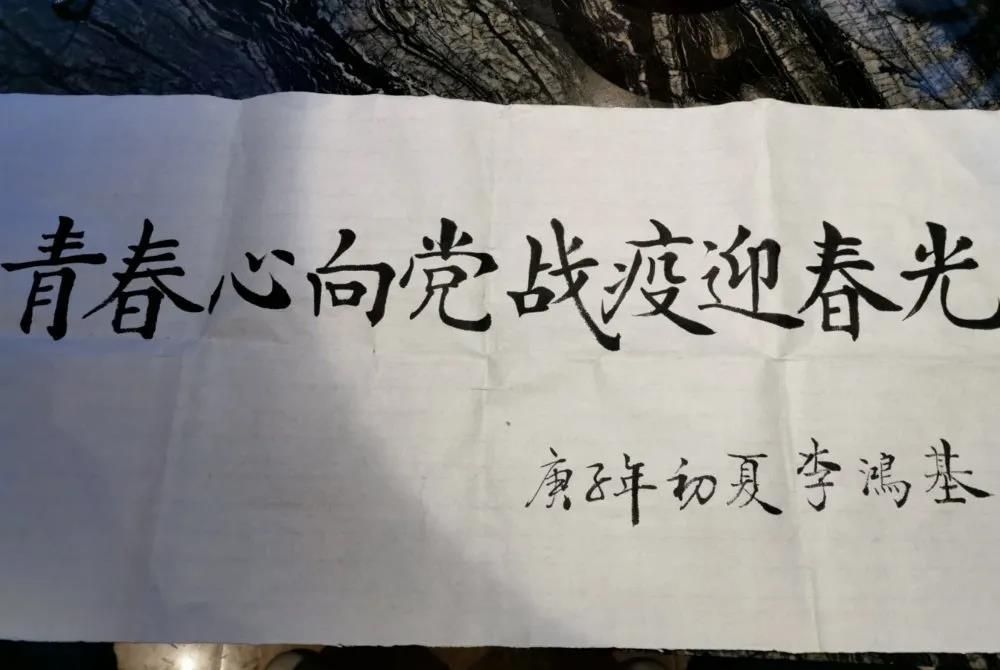 青春心向党战疫迎春光
庚子年初夏李鸿基